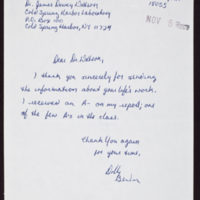 Dr. James Dewey Watson
Cold Spring Harbor Laboratory
P.O. Box 100
Cold Spring Harbor, NY 11724
18055
NOV 5
Dear Dr. Watson,
I thank you sincerely for sending
the informations about your life's work.
I received an A- on my report; one
of the few A's in the class.
Thank You again
for your time,